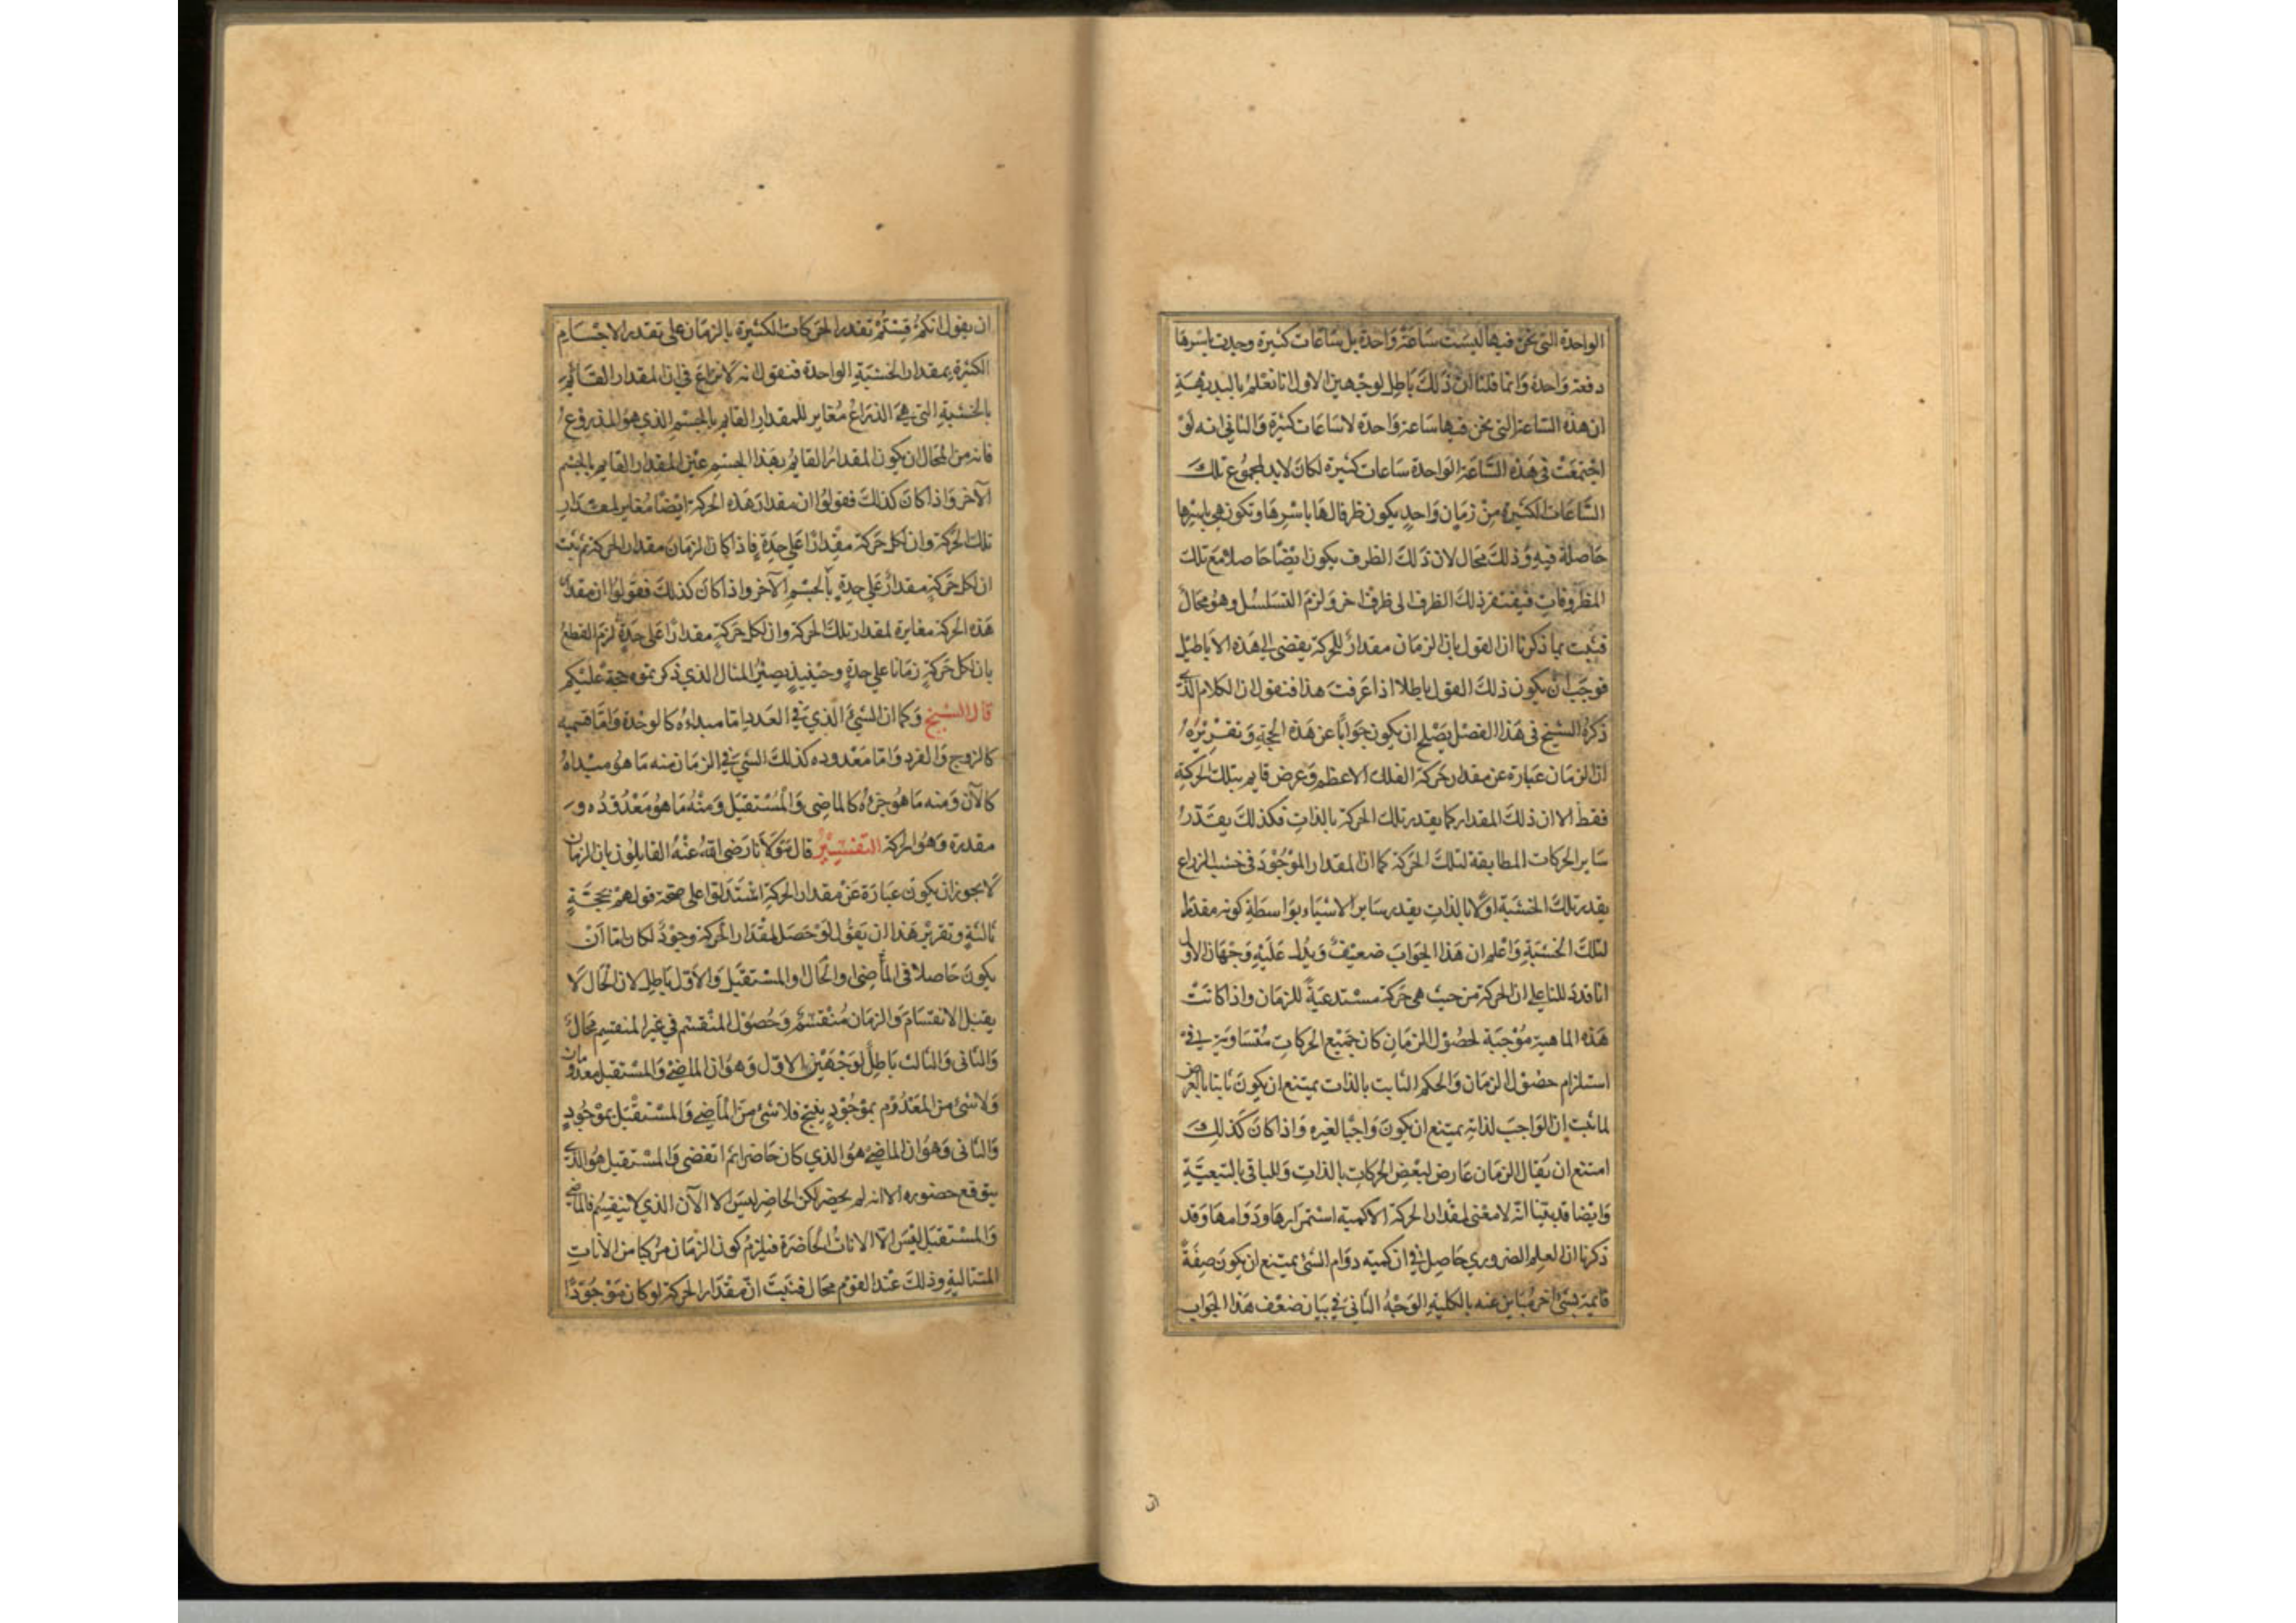 الواحدة التي نحن فيها ليست ساعة واحدة بل ساعات كثيرة وجدت باسرها
دفعة واحدة وانما قلنا ان ذلك باطل لوجهين الاول انا نعلم بالبديهة
ان هذه الساعة التي نحن فيها ساعة واحدة لا ساعات كثيرة والثاني انه لو
اجتمعت في هذه الساعة الواحدة ساعات كثيرة لكان لابد لمجموع تلك
الساعات الكثيرة من زمان واحد يكون ظرفا لها باسرها وتكون هي باسرها
حاصلة فيه وذلك محال لان ذلك الظرف يكون ايضا حاصلا مع تلك
المظروفات فيفتقر ذلك الظرف الى ظرف اخر ولزم التسلسل وهو محال
فثبت بما ذكرنا ان القول بان الزمان مقدار للحركة يفضي الى هذه الاباطيل
فوجب ان يكون ذلك القول باطلا اذا عرفت هذا فنقول ان الكلام الذي
ذكره الشيخ في هذا الفصل يصلح ان يكون جوابا عن هذه الحجة وتقريره
ان الزمان عبارة عن مقدار حركة الفلك الاعظم وعرض قايم بتلك الحركة
فقط الا ان ذلك المقدار كما يقدر تلك الحركة بالذات فكذلك يقدر
ساير الحركات المطابقة لتلك الحركة كما ان المقدار الموجود في خشب الذراع
يقدر تلك الخشبة اولا بالذات يقدر ساير الاشياء بواسطة كونه مقدارا
لتلك الخشبة واعلم ان هذا الجواب ضعيف ويدل عليه وجهان الاول
انا قد دللنا على ان الحركة من حيث هي حركة مستدعية للزمان واذا كانت
هذه الماهية موجبة لحصول الزمان كان جميع الحركات متساوية في
استلزام حصول الزمان والحكم الثابت بالذات يمتنع ان يكون ثابتا بالعرض
لما ثبت ان الواجب لذاته يمتنع ان يكون واجبا لغيره واذا كان كذلك
امتنع ان يقال الزمان عارض لبعض الحركات بالذات وللباقي بالتبعية
وايضا قد بينا انه لا معنى لمقدار الحركة الا كمية استمرارها ودوامها وقد
ذكرنا ان العلم الضروري حاصل في ان كمية دوام الشئ يمتنع ان يكون صفة
قايمة بشئ اخر مباين عنه بالكلية الوجه الثاني في بيان ضعف هذا الجواب
ان يقول انكم قستم تقدير الحركات الكثيرة بالزمان على تقدير الاجسام
الكثيرة بمقدار الخشبة الواحدة فنقول انه لا نزاع في ان المقدار القايم
بالخشبة التي هي الذراع مغاير للمقدار القايم بالجسم الذي هو المذروع
فانه من المحال ان يكون المقدار القايم بهذا الجسم عين المقدار القايم بالجسم
الآخر واذا كان كذلك فقولوا ان مقدار هذه الحركة ايضا مغاير لمقدار
تلك الحركة وان لكل حركة مقدارا على حدة فاذا كان الزمان مقدار الحركة ثم ثبت
ان لكل حركة مقدار على حدة بالجسم الآخر واذا كان كذلك فقولوا ان مقدار
هذه الحركة مغايرة لمقدار تلك الحركة وان لكل حركة مقدارا على حدة لزم القطع
بان لكل حركة زمانا على حدة وحينيذ يصير المثال الذي ذكرتموه حجة عليكم
قال الشيخ وكما ان الشئ الذي في العدد اما مبداءه كالوحدة واما قسيمه
كالزوج والفرد واما معدوده كذلك الشئ في الزمان منه ما هو مبداه
كالآن ومنه ما هو جزءه كالماضي والمستقبل ومنه ما هو معدوده و
مقدرة وهو الحركة التفسير قال مولانا رضي الله عنه القايلون بان الزمان
لا يجوز ان يكون عبارة عن مقدار الحركة استدلوا على صحة قولهم بحجة
ثالثة وتقرير هذا ان يقول لو حصل لمقدار الحركة وجود لكان اما ان
يكون حاصلا في الماضي او الحال او المستقبل والاول باطل لان الحال لا
يقبل الانقسام والزمان منقسم وحصول المنقسم في غير المنقسم محال
والثاني والثالث باطل لوجهين الاول وهو ان الماضي والمستقبل معدومان
ولا شئ من المعدوم بموجود ينتج فلا شئ من الماضي والمستقبل بموجود
والثاني وهو ان الماضي هو الذي كان حاضرا ثم انقضى والمستقبل هو الذي
يتوقع حضوره الا انه لم يحضر لكن الحاضر ليس الا الآن الذي لا ينقسم فالماضي
والمستقبل ليس الا الانات الحاضرة فيلزم كون الزمان مركبا من الانات
المتتالية وذلك عند القوم محال فثبت ان مقدار الحركة لو كان موجودا